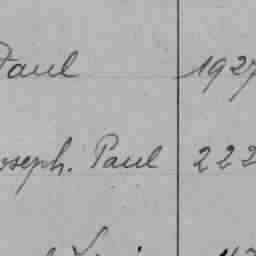 Paul 1927
oseph. Paul 222